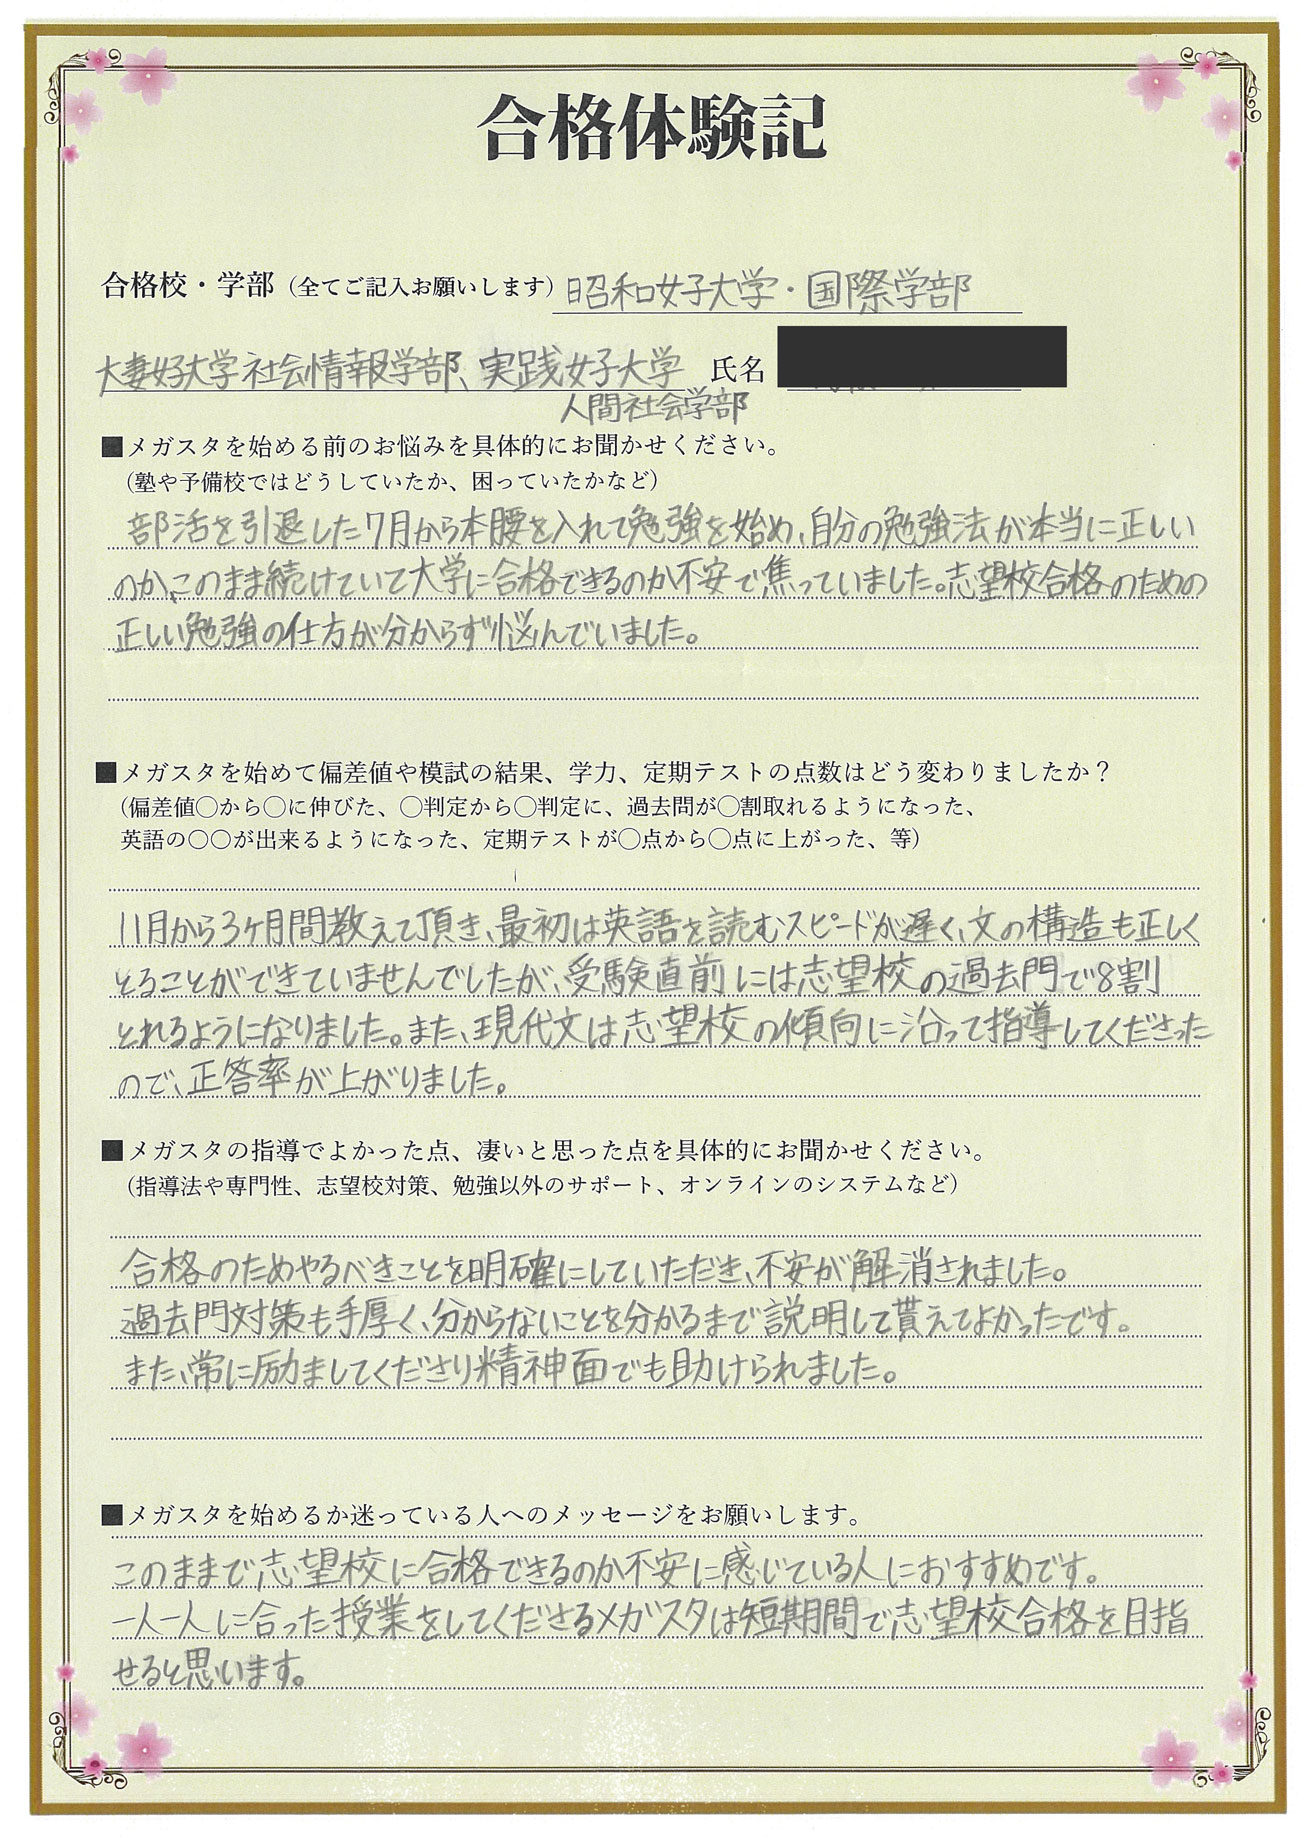 合格体験記
合格校・学部（全てご記入お願いします）昭和女子大学・国際学部
大妻女子大学社会情報学部、実践女子大学 氏名
人間社会学部
■メガスタを始める前のお悩みを具体的にお聞かせください。
（塾や予備校ではどうしていたか、困っていたかなど）
部活を引退した7月から本腰を入れて勉強を始め、自分の勉強法が本当に正しい
のか、このまま続けていて大学に合格できるのか不安で焦っていました。志望校合格のための
正しい勉強の仕方が分からず悩んでいました。
■メガスタを始めて偏差値や模試の結果、学力、定期テストの点数はどう変わりましたか？
（偏差値○から○に伸びた、○判定から○判定に、過去問が○割取れるようになった、
英語の○○が出来るようになった、定期テストが○点から○点に上がった、等）
11月から3ヶ月間教えて頂き、最初は英語を読むスピードが遅く、文の構造も正しく
とることができていませんでしたが、受験直前には志望校の過去門で8割
とれるようになりました。また、現代文は志望校の傾向に沿って指導してくださった
ので、正答率が上がりました。
■メガスタの指導でよかった点、凄いと思った点を具体的にお聞かせください。
（指導法や専門性、志望校対策、勉強以外のサポート、オンラインのシステムなど）
合格のためやるべきことを明確にしていただき、不安が解消されました。
過去門対策も手厚く、分からないことを分かるまで説明して貰えてよかったです。
また、常に励ましてくださり精神面でも助けられました。
■メガスタを始めるか迷っている人へのメッセージをお願いします。
このままで志望校に合格できるのか不安に感じている人におすすめです。
一人一人に合った授業をしてくださるメガスタは短期間で志望校合格を目指
せると思います。